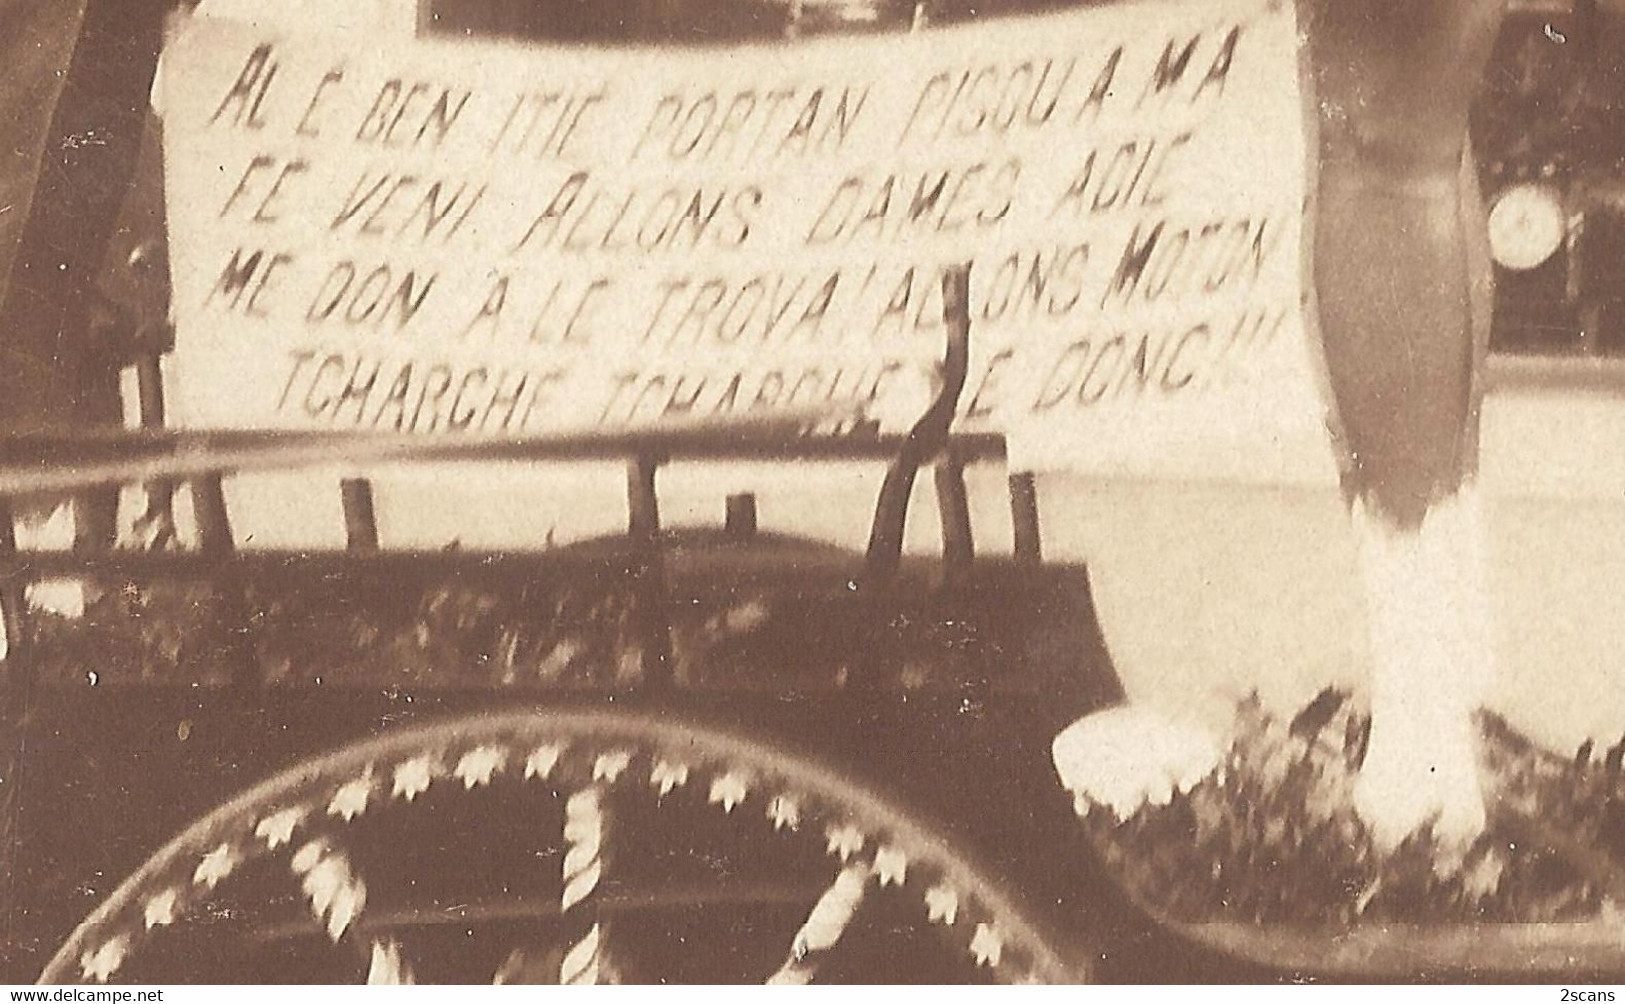 AL E BEN ITIÉ PORTAN PISQU'A MA
FE VENI. ALLONS DAMES ADIE
ME DON A LE TROVA! ALLONS MOTON
TCHARGHE TCHARGHE LE DONC!!!
delcampe.net
2scans